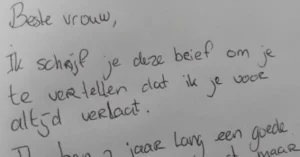 Beste vrouw,
Ik schrijf je deze brief om je
te vertellen dat ik je voor
altijd verlaat.
jaar lang een goede
maar